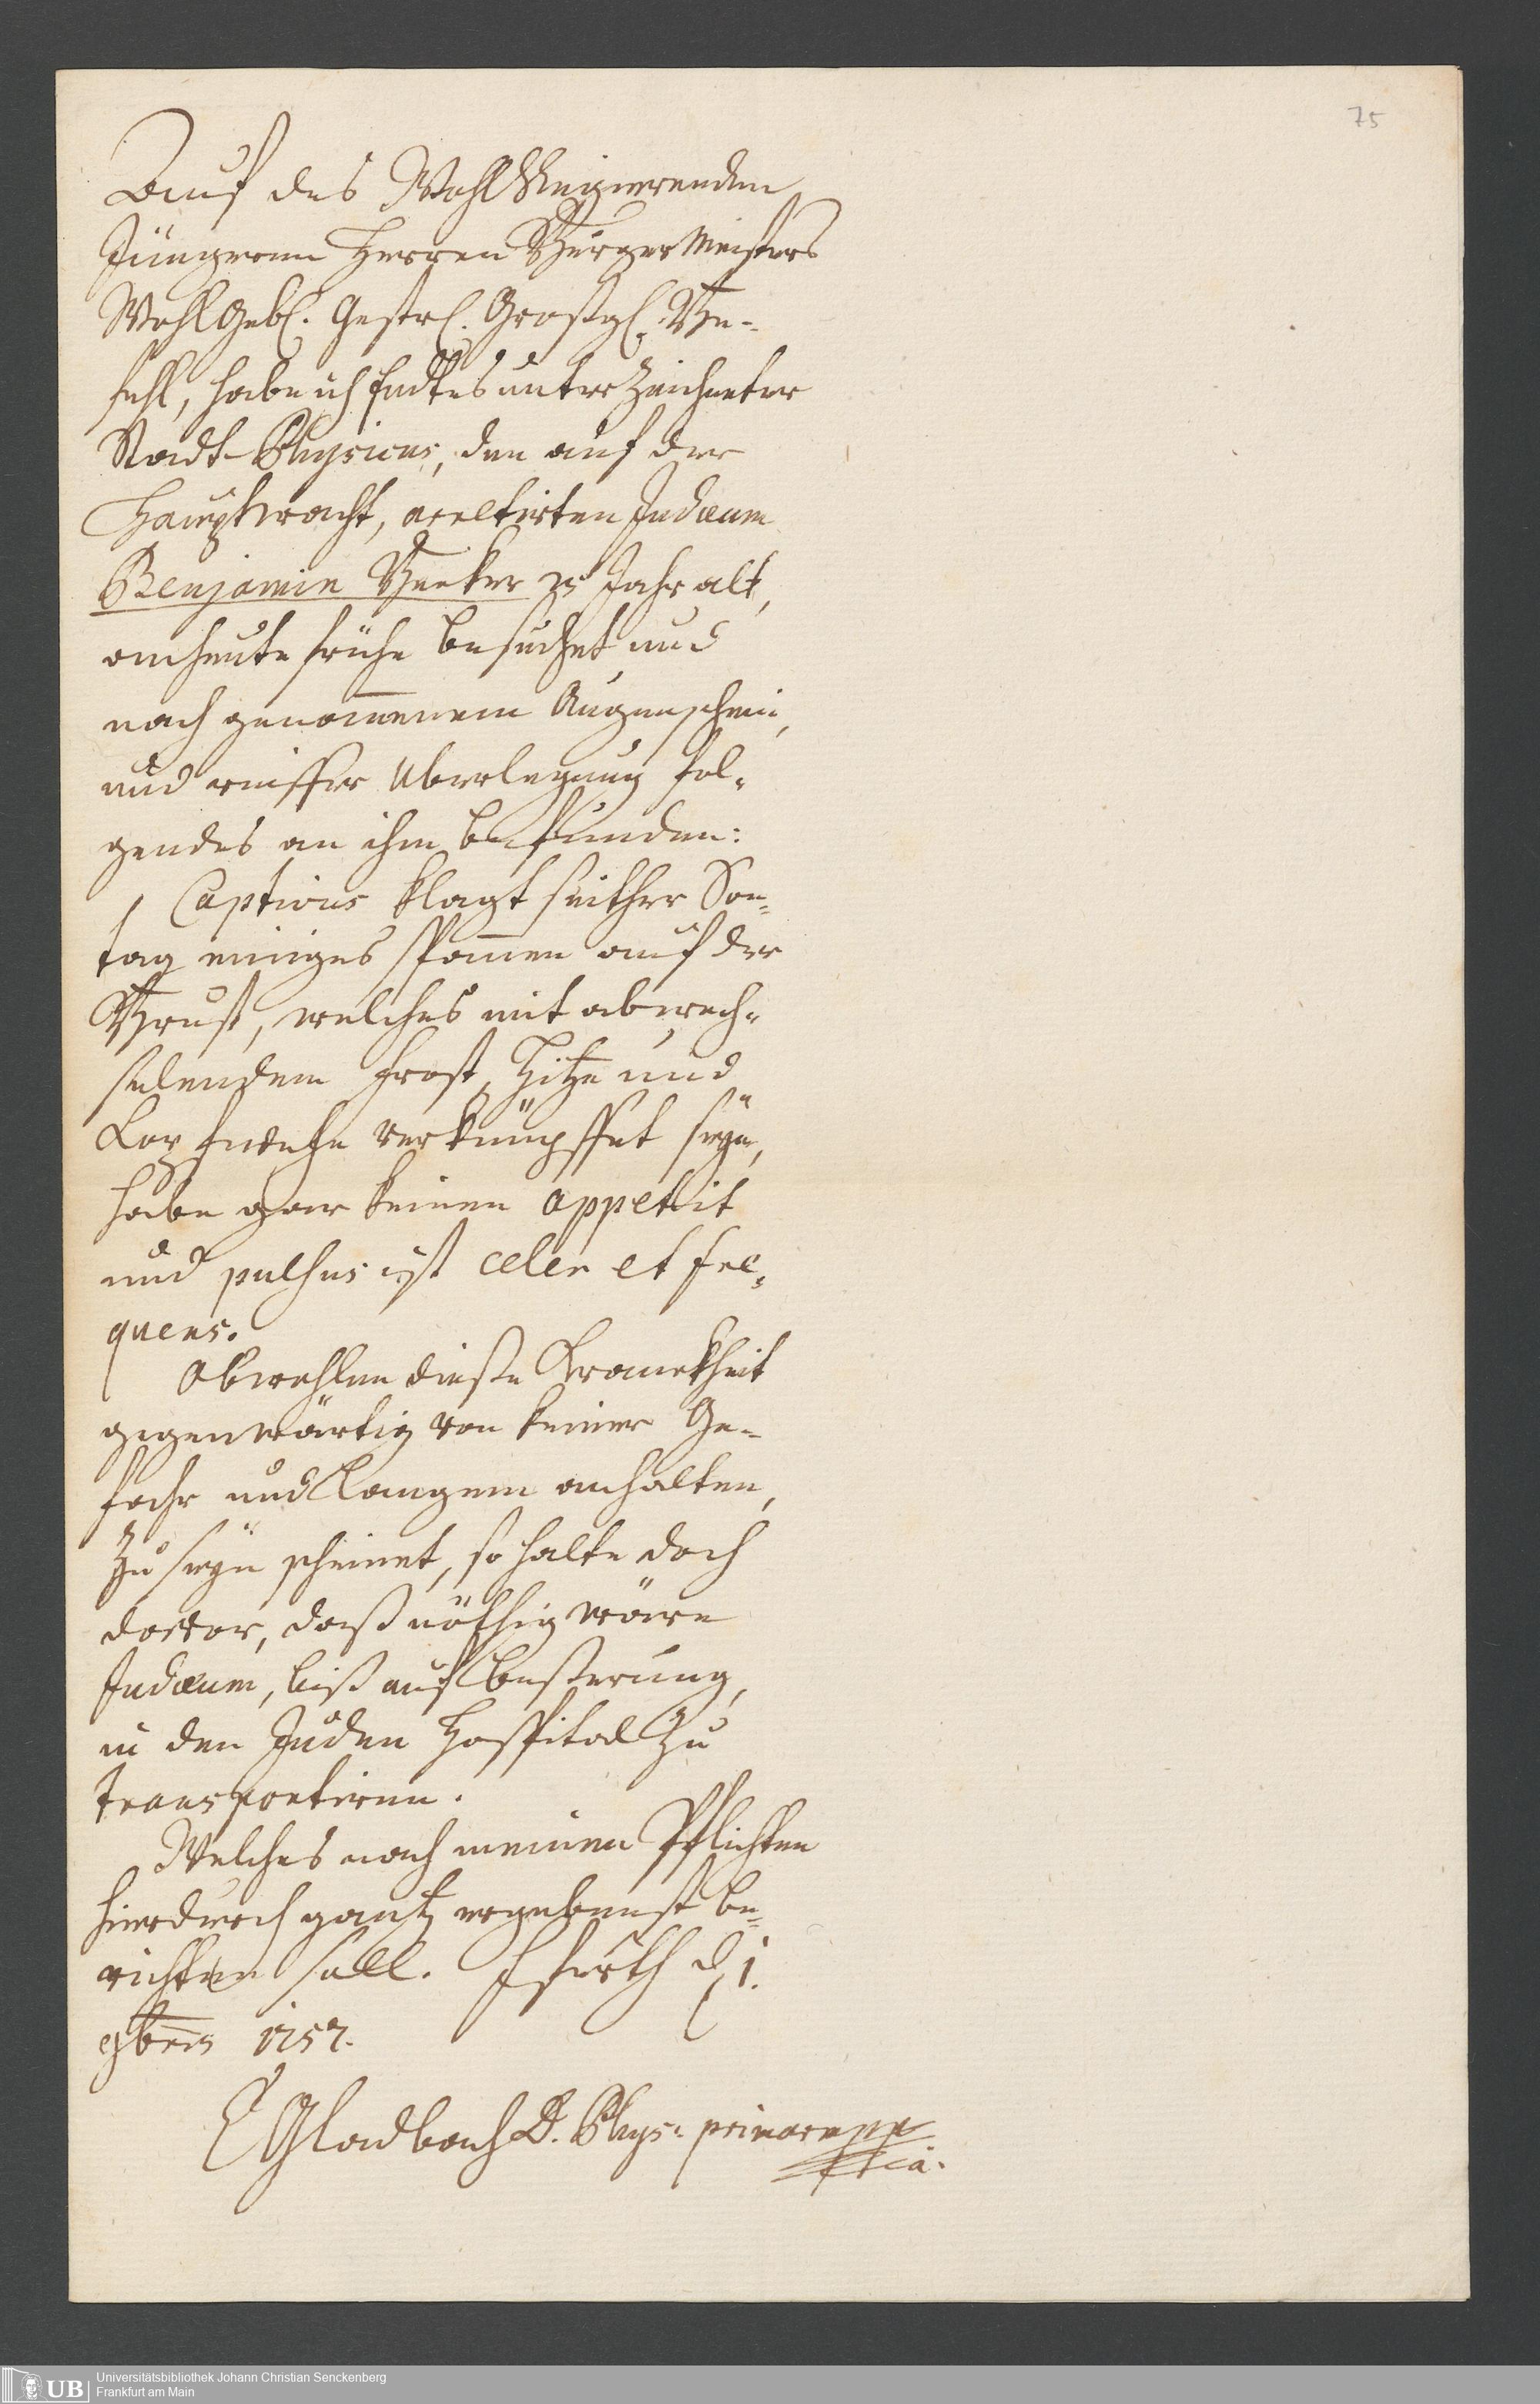 75
Auf des WohlRegierenden
Jüngeren Herren BürgerMeisters
WohlGebl. Gestrl. Großgl. Be-
fehl, habe ich Endtes unterzeichneter
Stadt-Physicus, den auf der
Hauptwacht, arrestirten Judæum
Benjamin Becker 25 Jahr alt,
anheute frühe besuchet und
nach genom̄enem Augenschein,
und reiffer Uberlegung fol-
gendes an ihm befunden:
Captivus klagt seither Son-
tag einiges span̄en auf der
Brust, welches mit abwech-
selendem Frost, Hitze und
Kopfwehe verknüpffet seÿe,
habe gar keinen appetit
und pulsus ist celer et fre-
quens.
Obwohlen dieße Kranckheit
gegenwärtig von keiner Ge-
fahr und langem anhalten,
zu seÿn scheinet, so halte doch
davor, daß nöthig wäre
Judæum, biß auf beßerung,
in den Juden Hospital zu
transportiren.
Welches nach meinen Pflichten
hierdurch gantz ergebenst be-
richten soll. Fffurth d 1.
9br̄is 1757.
Gladbach D. Phys: primar mpp
UB
Universitätsbibliothek Johann Christian Senckenberg
Frankfurt am Main